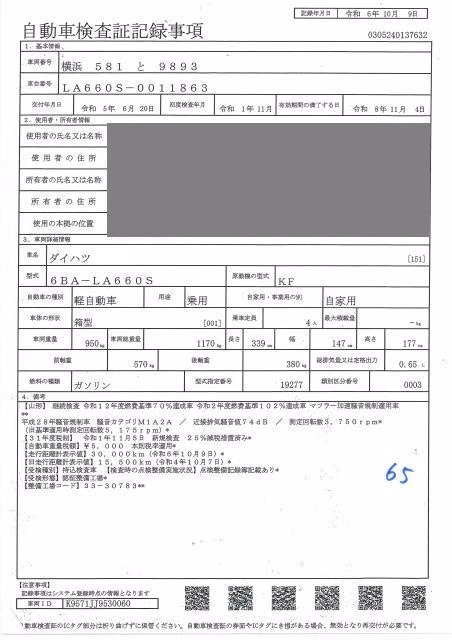 記録年月日 令和 6年10月 9日
自動車検査証記録事項
0305240137632
1. 基本情報
車両番号 横浜 581 と 9893
車台番号 LA660S-0011863
交付年月日 令和 5年 6月 20日 初度検査年月 令和 1年11月 有効期間の満了する日 令和 8年11月 4日
2. 使用者・所有者情報
使用者の氏名又は名称
使用者の住所
所有者の氏名又は名称
所有者の住所
使用の本拠の位置
3. 車両詳細情報
車名 ダイハツ [151]
型式 6BA-LA660S 原動機の型式 KF
自動車の種別 軽自動車 用途 乗用 自家用・事業用の別 自家用
車体の形状 箱型 [001] 乗車定員 4人 最大積載量 -kg
車両重量 950kg 車両総重量 1170kg 長さ 339cm 幅 147cm 高さ 177cm
前軸重 570kg 後軸重 380kg 総排気量又は定格出力 0.65L
燃料の種類 ガソリン 型式指定番号 19277 類別区分番号 0003
4. 備考
【山形】 継続検査 令和12年度燃費基準70%達成車 令和2年度燃費基準102%達成車 マフラー加速騒音規制適用車
**
平成28年騒音規制車 騒音カテゴリM1A2A / 近接排気騒音値74dB / 測定回転数3,750rpm*
(旧基準適用時測定回転数5,175rpm)*
【31年度税制】 令和1年11月5日 新規検査 25%減税措置済み*
【自動車重量税額】 ¥5,000 本則税率適用*
【走行距離計表示値】 30,000km(令和6年10月9日)*
【旧走行距離計表示値】 15,500km(令和4年10月7日)*
【受検種別】 持込検査車 【検査時の点検整備実施状況】 点検整備記録簿記載あり*
【受検形態】 認証整備工場*
【整備工場コード】 33-30783**
65
【注意事項】
記録事項はシステム登録時点の情報となります
車両ID K9571JJ9530060
自動車検査証のICタグ部分は折り曲げずに保管ください。自動車検査証の券面やICタグにき損がある場合、無効となり再交付が必要です。